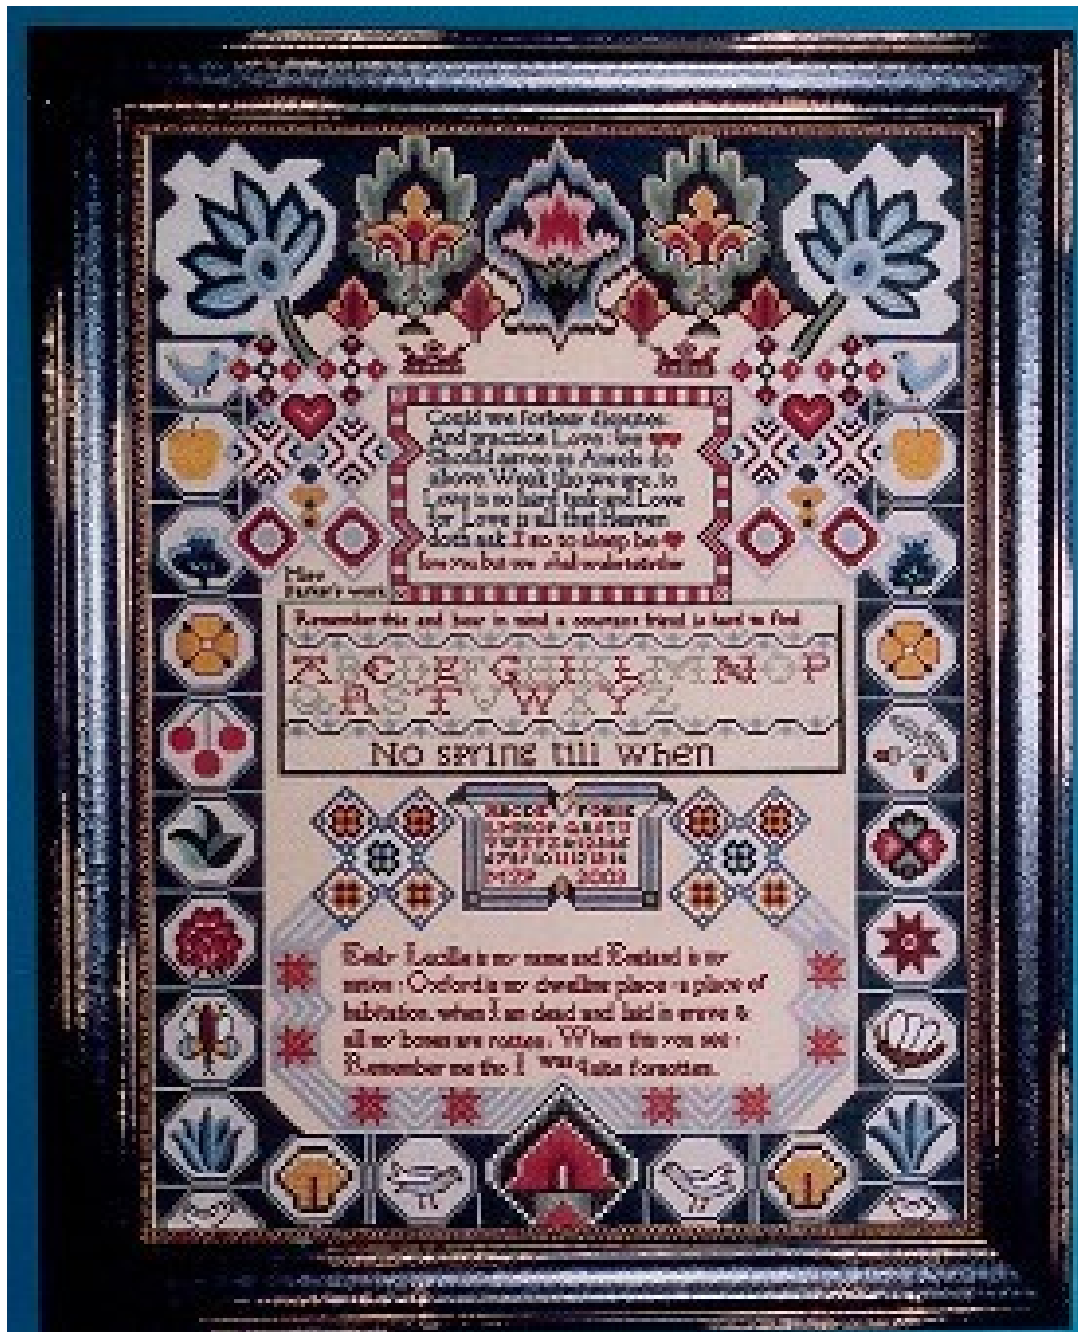 Could we forbear disputes
And practice Love: We
Should agree as Angels do
above. Weak tho we are, to
Love is no hard task and Love
for Love is all that Heaven
doth ask. I go to sleep be
fore you but we shall wake together
Miss
work
Remember this and bear in mind a constant friend is hard to find
ABCDEFGHIKLMNOP
QRSTVWXYZ
No spring till when
ABCDE FGHIK
Emily Lucilla is my name and England is my
nation: Oxford is my dwelling place a place of
habitation. when I am dead and laid in grave &
all my bones are rotten. When this you see:
Remember me tho I was quite forgotten.